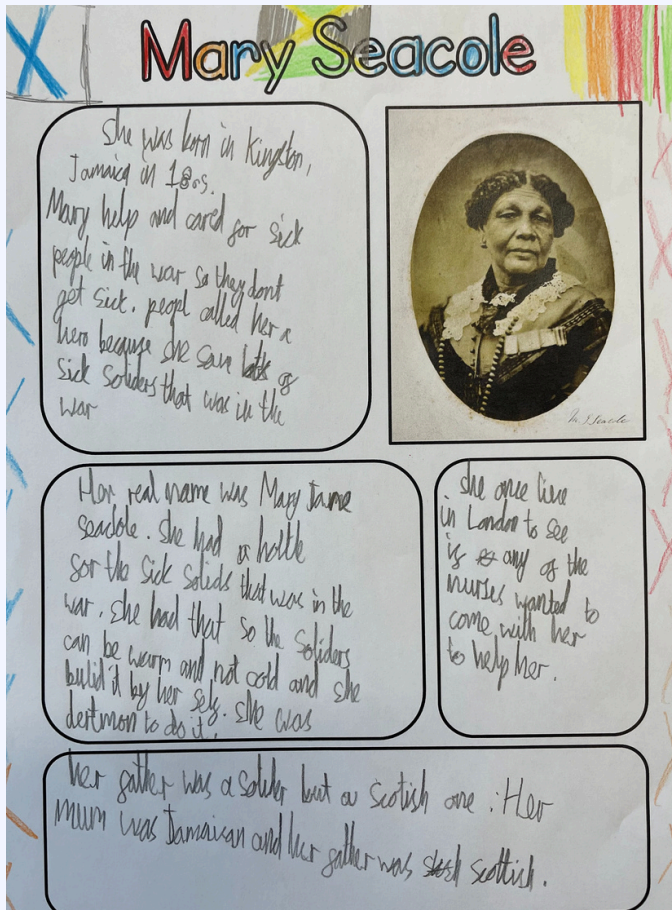 Mary Seacole
She was born in Kingston,
Jamaica in 1805.
Mary help and cared for sick
people in the war so they dont
get sick. peopl called her a
hero because she save lots of
sick soliders that was in the
war
M. J. Seacole
Her real name was Mary Jame
seacole. she had a holtle
for the sick solids that was in the
war. she had that so the soliders
can be warm and not cold and she
bulid'd by her self. she was
dertmon to do it.
she once live
in London to see
if any of the
nurses wanted to
come with her
to help her.
her father was a solider but a scotish one. Her
mum was Jamaican and her father was scottish.